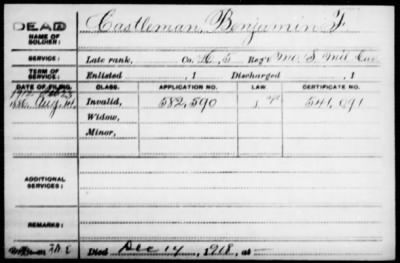 DEAD
NAME OF SOLDIER: Castleman, Benjamin F.
SERVICE: Late rank, Co. H, 5 Reg't Mo. S. Mil. Cav.
TERM OF SERVICE: Enlisted , 1 Discharged , 1
DATE OF FILING. CLASS. APPLICATION NO. LAW. CERTIFICATE NO.
Aug. 14, Invalid, 582,590 541,091
Widow,
Minor,
ADDITIONAL SERVICES:
REMARKS:
Died Dec 14, 1918, at —